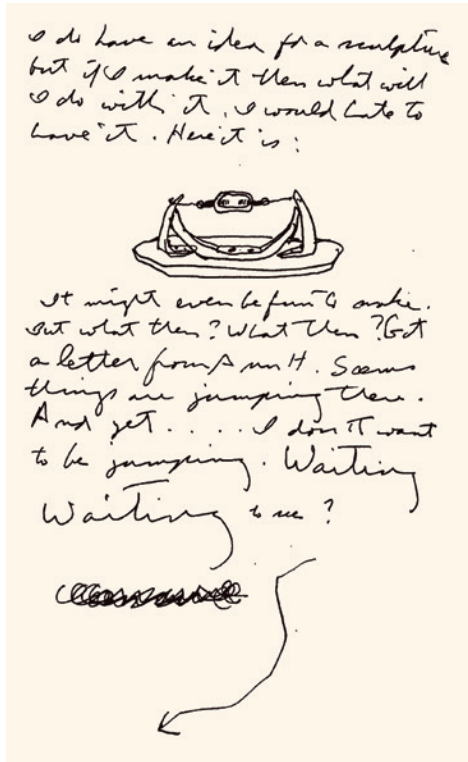 I do have an idea for a sculpture
but if I make it then what will
I do with it. I would hate to
have it. Here it is:
It might even be fun to make.
But what then? What then? Got
a letter from Ann H. Seems
things are jumping there.
And yet..... I don't want
to be jumping. Waiting
Waiting to see?